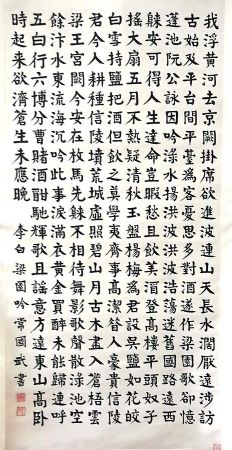 我浮黄河去京闕掛席欲進波連山天長水闊厭遠涉訪
古始及平台間平臺為客憂思多對酒遂作梁園歌卻憶
蓬池阮公詠因吟淥水揚洪波洪波浩蕩迷舊國路遠西
歸安可得人生達命豈暇愁且飲美酒登高樓平頭奴子
搖大扇五月不熱疑清秋玉盤楊梅為君設吳鹽如花皎
白雪持鹽把酒但飲之莫學夷齊事高潔昔人豪貴信陵
君今人耕種信陵墳荒城虛照碧山月古木盡入蒼梧雲
梁王宮闕今安在枚馬先歸不相待舞影歌聲散淥池空
餘汴水東流海沉吟此事淚滿衣黃金買醉未能歸連呼
五白行六博分曹賭酒酣馳輝歌且謠意方遠東山高臥
時起來欲濟蒼生未應晚 李白梁園吟常國武書